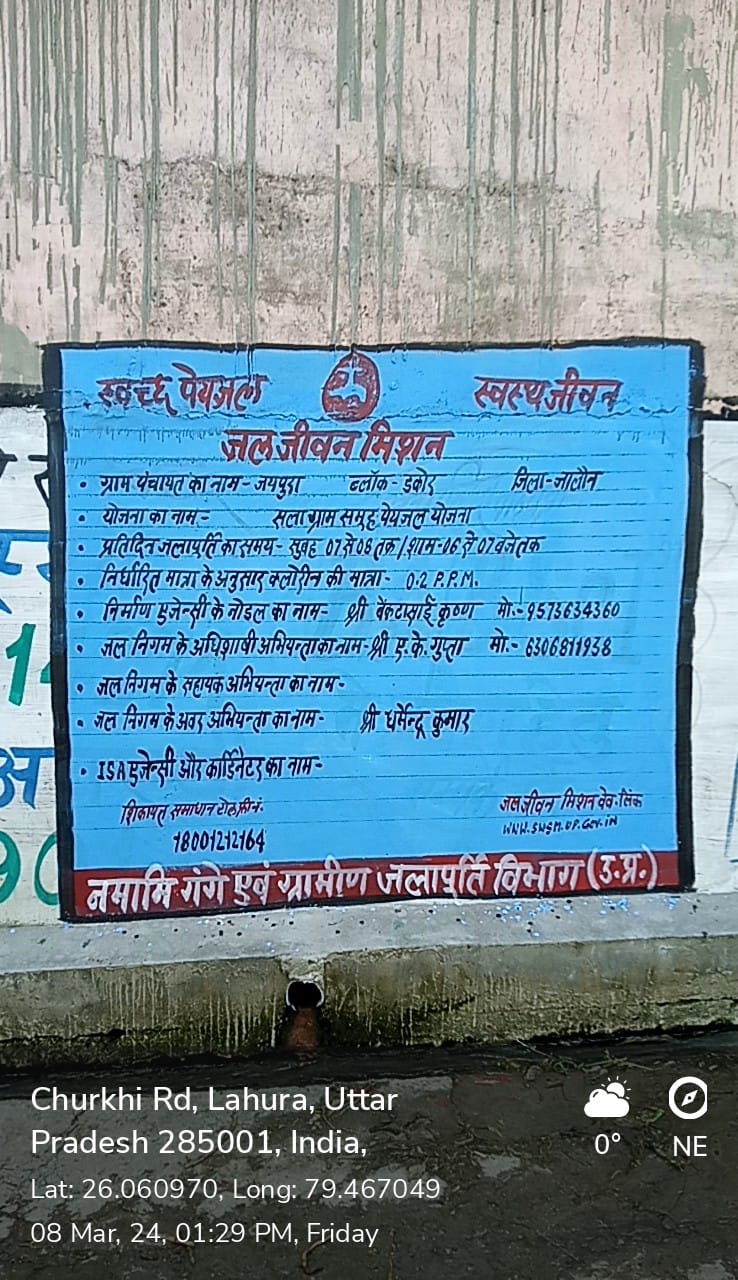 स्वच्छ पेयजल स्वस्थ जीवन
जल जीवन मिशन
• ग्राम पंचायत का नाम - जयपुरा ब्लॉक - डकोर जिला - जालौन
• योजना का नाम - सला ग्राम समूह पेयजल योजना
• प्रतिदिन जलापूर्ति का समय - सुबह 07 से 08 तक / शाम - 06 से 07 बजे तक
• निर्धारित मात्रा के अनुसार क्लोरीन की मात्रा - 0.2 P.P.M.
• निर्माण एजेन्सी के नोडल का नाम - श्री वेंकटासाई कृष्ण मो.- 9573634360
• जल निगम के अधिशाषी अभियन्ता का नाम - श्री ए.के. गुप्ता मो.- 6306811938
• जल निगम के सहायक अभियन्ता का नाम -
• जल निगम के अवर अभियन्ता का नाम - श्री धर्मेन्द्र कुमार
• ISA एजेन्सी और कार्डिनेटर का नाम -
शिकायत समाधान टोल फ्री नं. जल जीवन मिशन वेव. लिंक
18001212164 WWW.SWSM.UP.GOV.IN
नमामि गंगे एवं ग्रामीण जलापूर्ति विभाग (उ.प्र.)
Churkhi Rd, Lahura, Uttar
Pradesh 285001, India,
0° NE
Lat: 26.060970, Long: 79.467049
08 Mar, 24, 01:29 PM, Friday